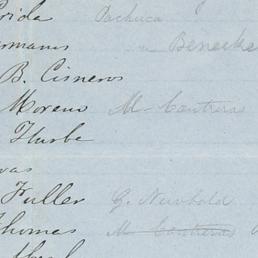 rida Pachuca
ermanos " Benecke
B. Cisneros
Moreno M. Contreras
Iturbe
vas
Fuller G. Newbold
Thomas M. Contreras